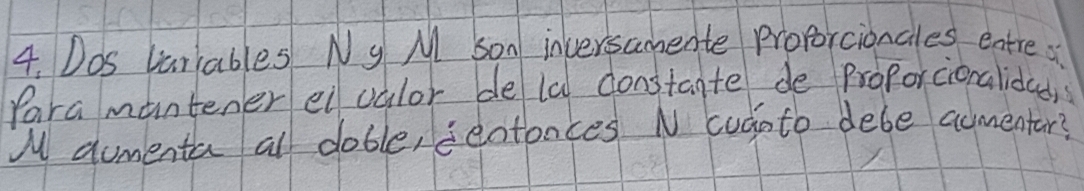 4. Dos variables N y M son inversamente proporcionales entre si.
Para mantener el valor de la constante de proporcionalidad, si
M aumenta al doble, ¿entonces N cuánto debe aumentar?